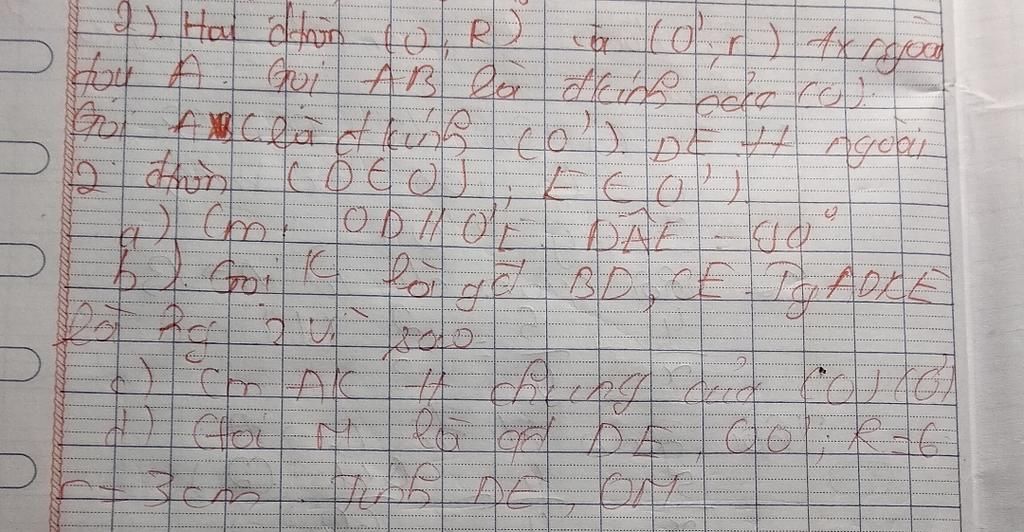 2) Hai đtròn (O, R) và (O', r) tx ngoài
tại A. Gọi AB là đkính của (O).
Gọi AC là đkính (O'). DE tt ngoài
2 đtròn (D ∈ O), E ∈ O')
a) Cm. OD // O'E. DAE = 90°
b) Gọi K là gđ BD, CE. Tg ADKE
là hg ? vì sao
c) Cm AK tt chung của (O) (O')
d) Gọi M là gđ DE, OO', R = 6
r = 3 cm. Tính DE, OM